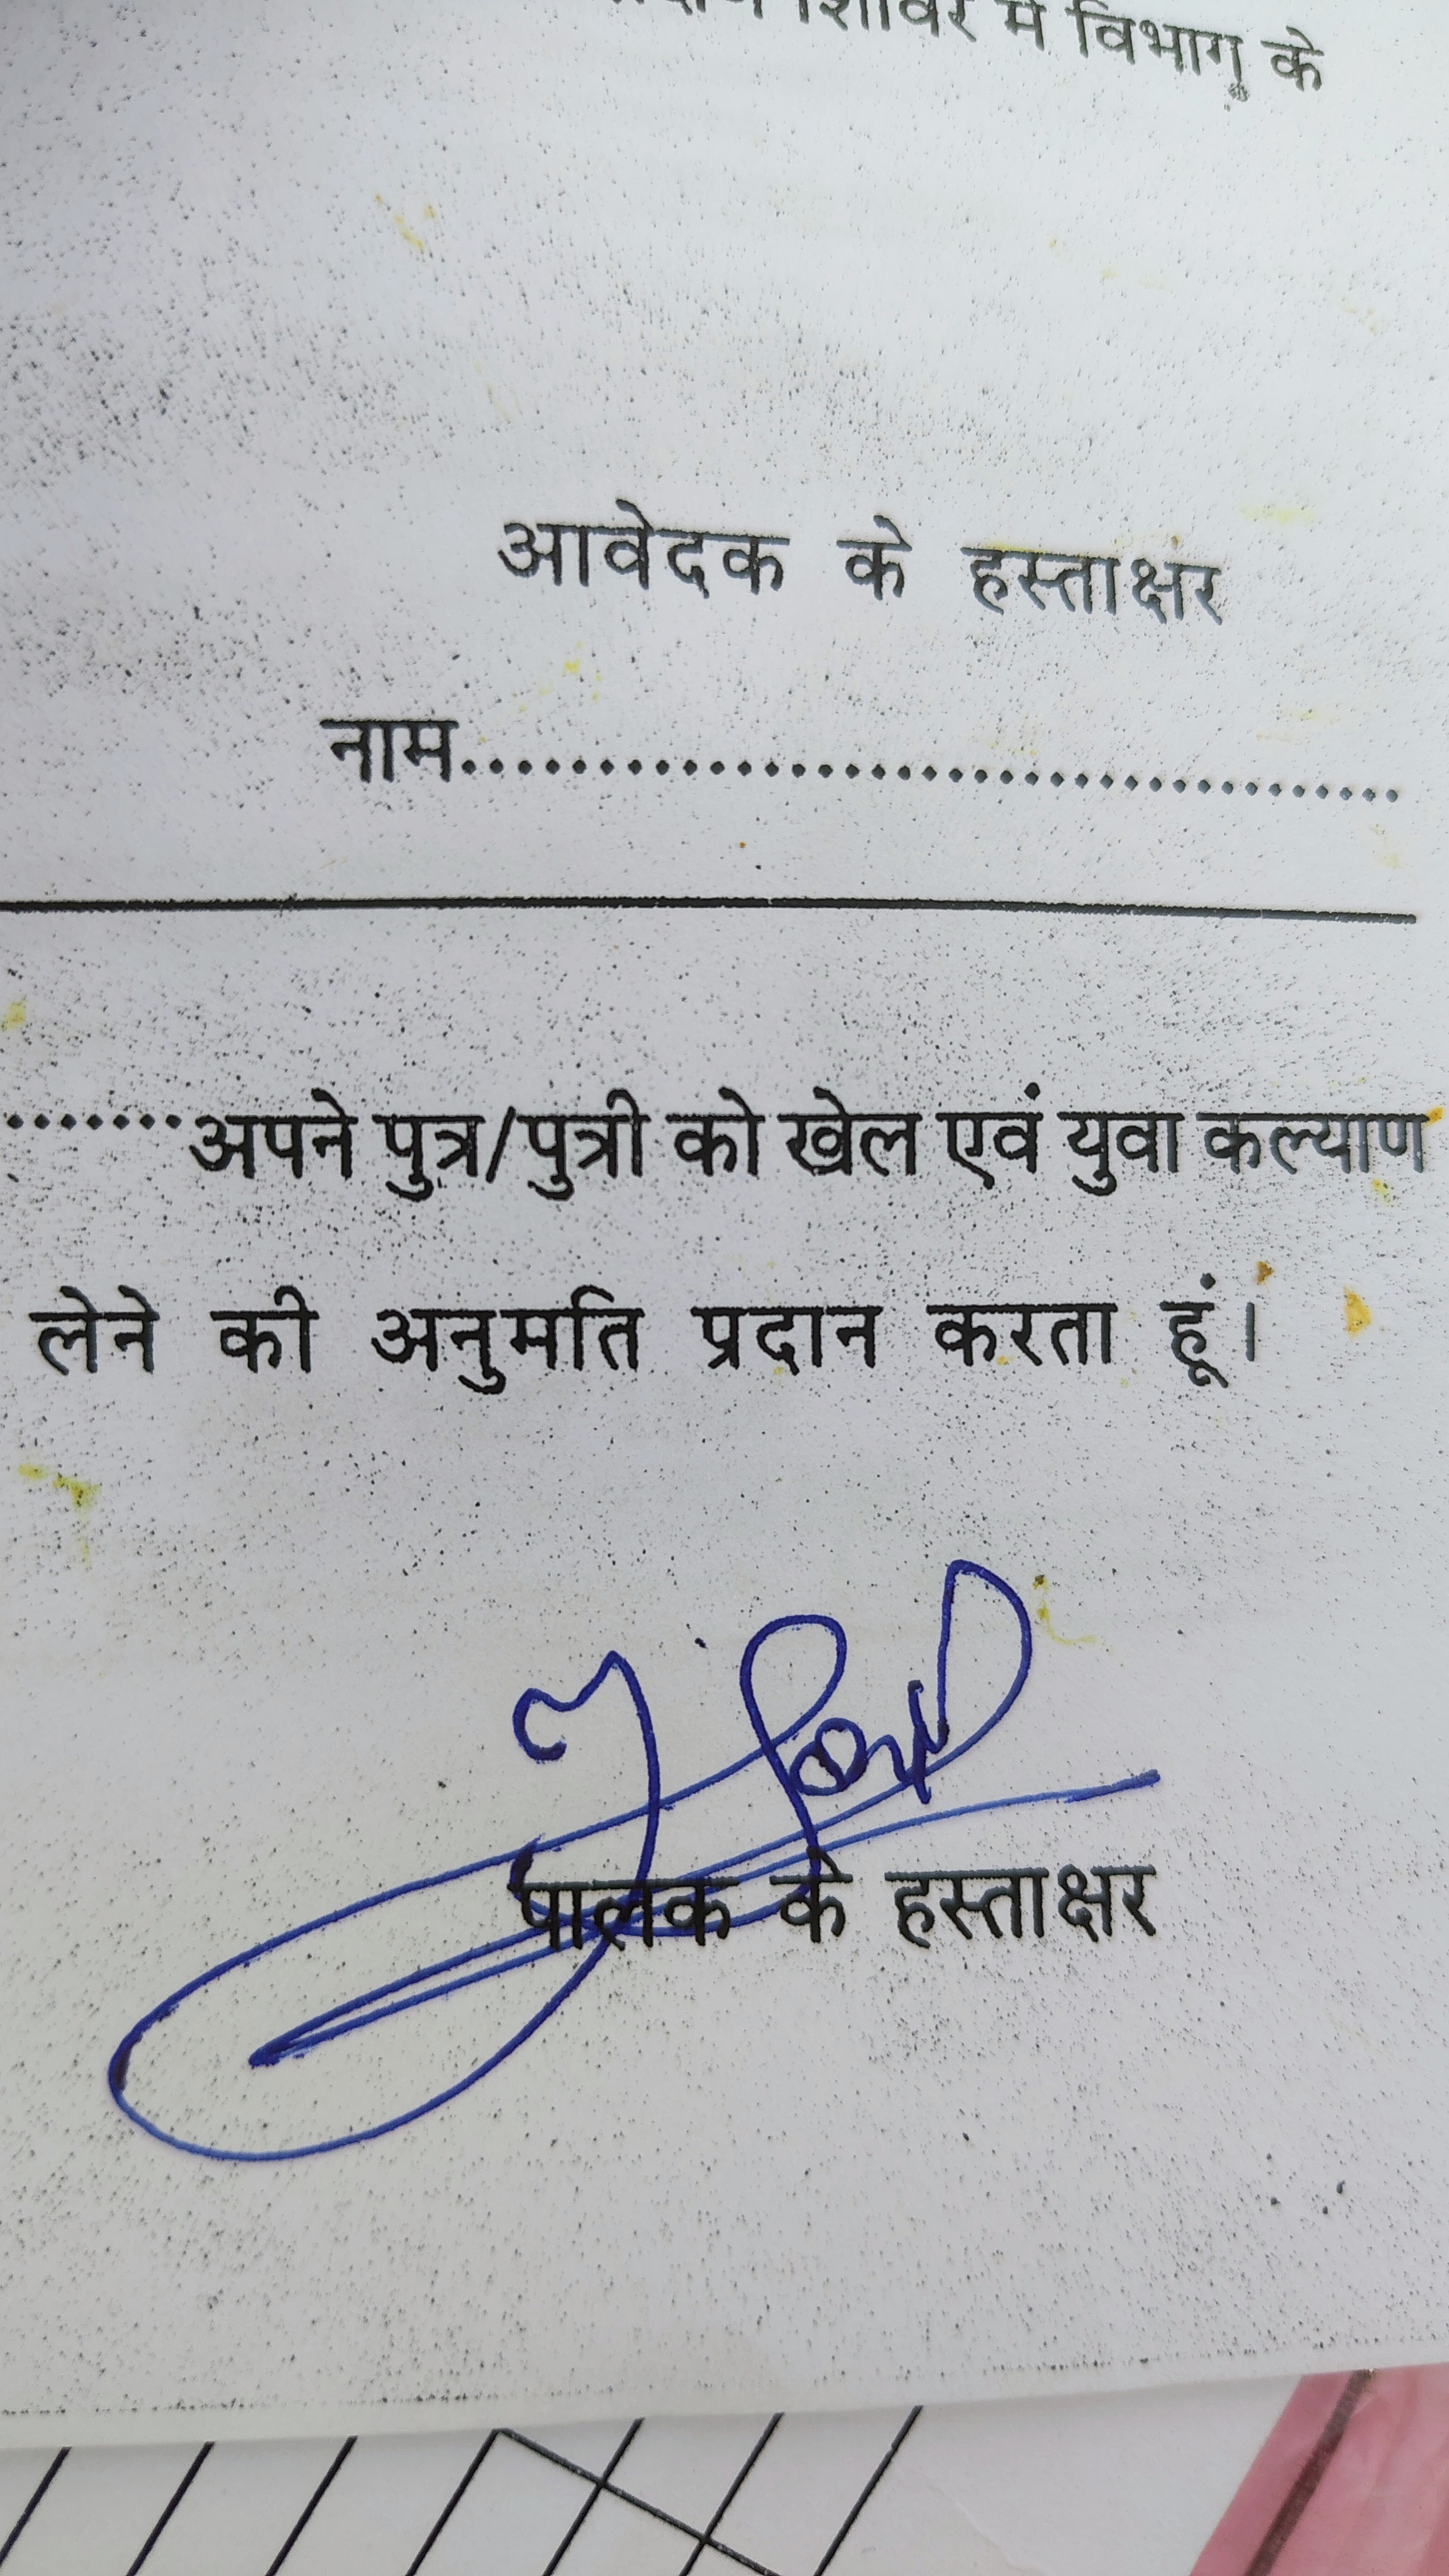 शिविर में विभाग के
आवेदक के हस्ताक्षर
नाम.......................................
.......अपने पुत्र/पुत्री को खेल एवं युवा कल्याण
लेने की अनुमति प्रदान करता हूं।
पालक के हस्ताक्षर